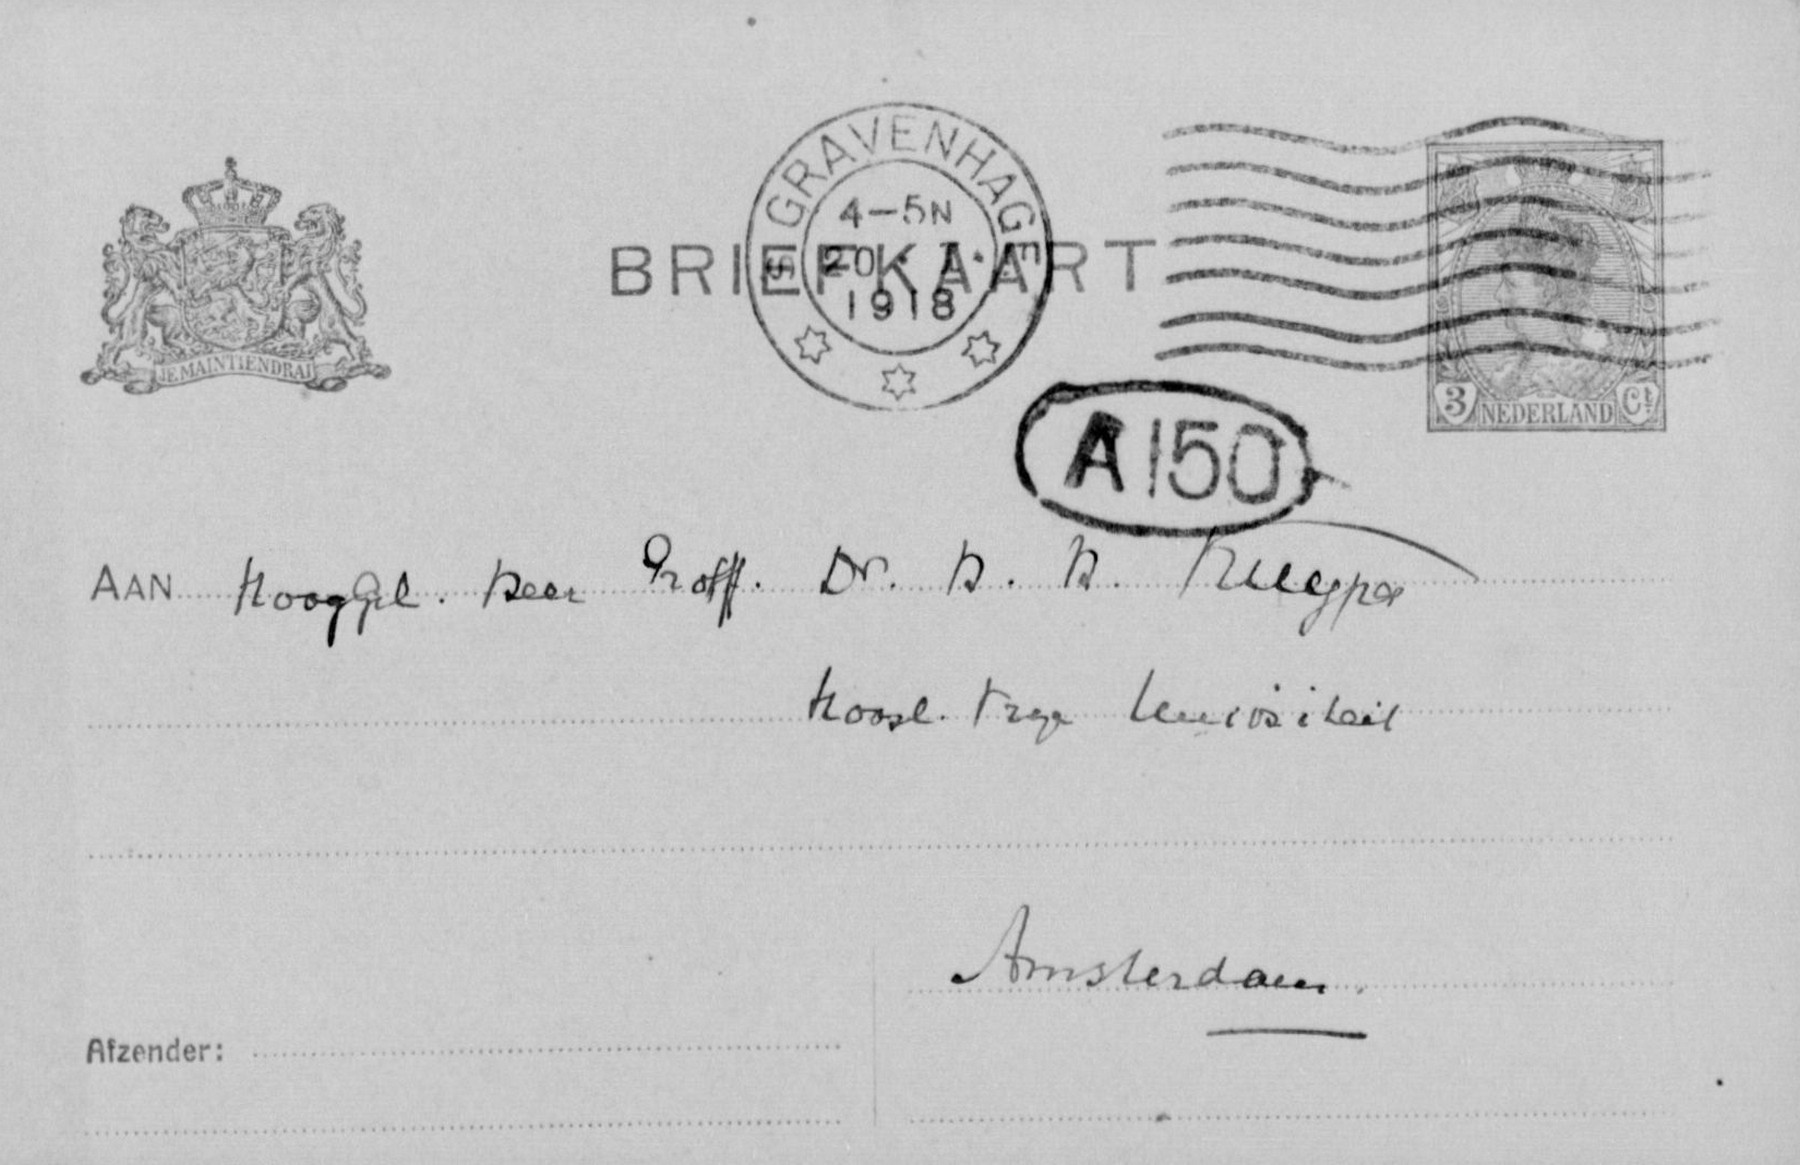 'S GRAVENHAGE
4–5N
20 · 1 ·
1918
BRIEFKAART
JE MAINTIENDRAI
3 NEDERLAND Ct
A150
AAN HoogGel. Heer Proff. Dr. H. H. Kuyper
Hoogl. Vrye Universiteit
Amsterdam.
Afzender: